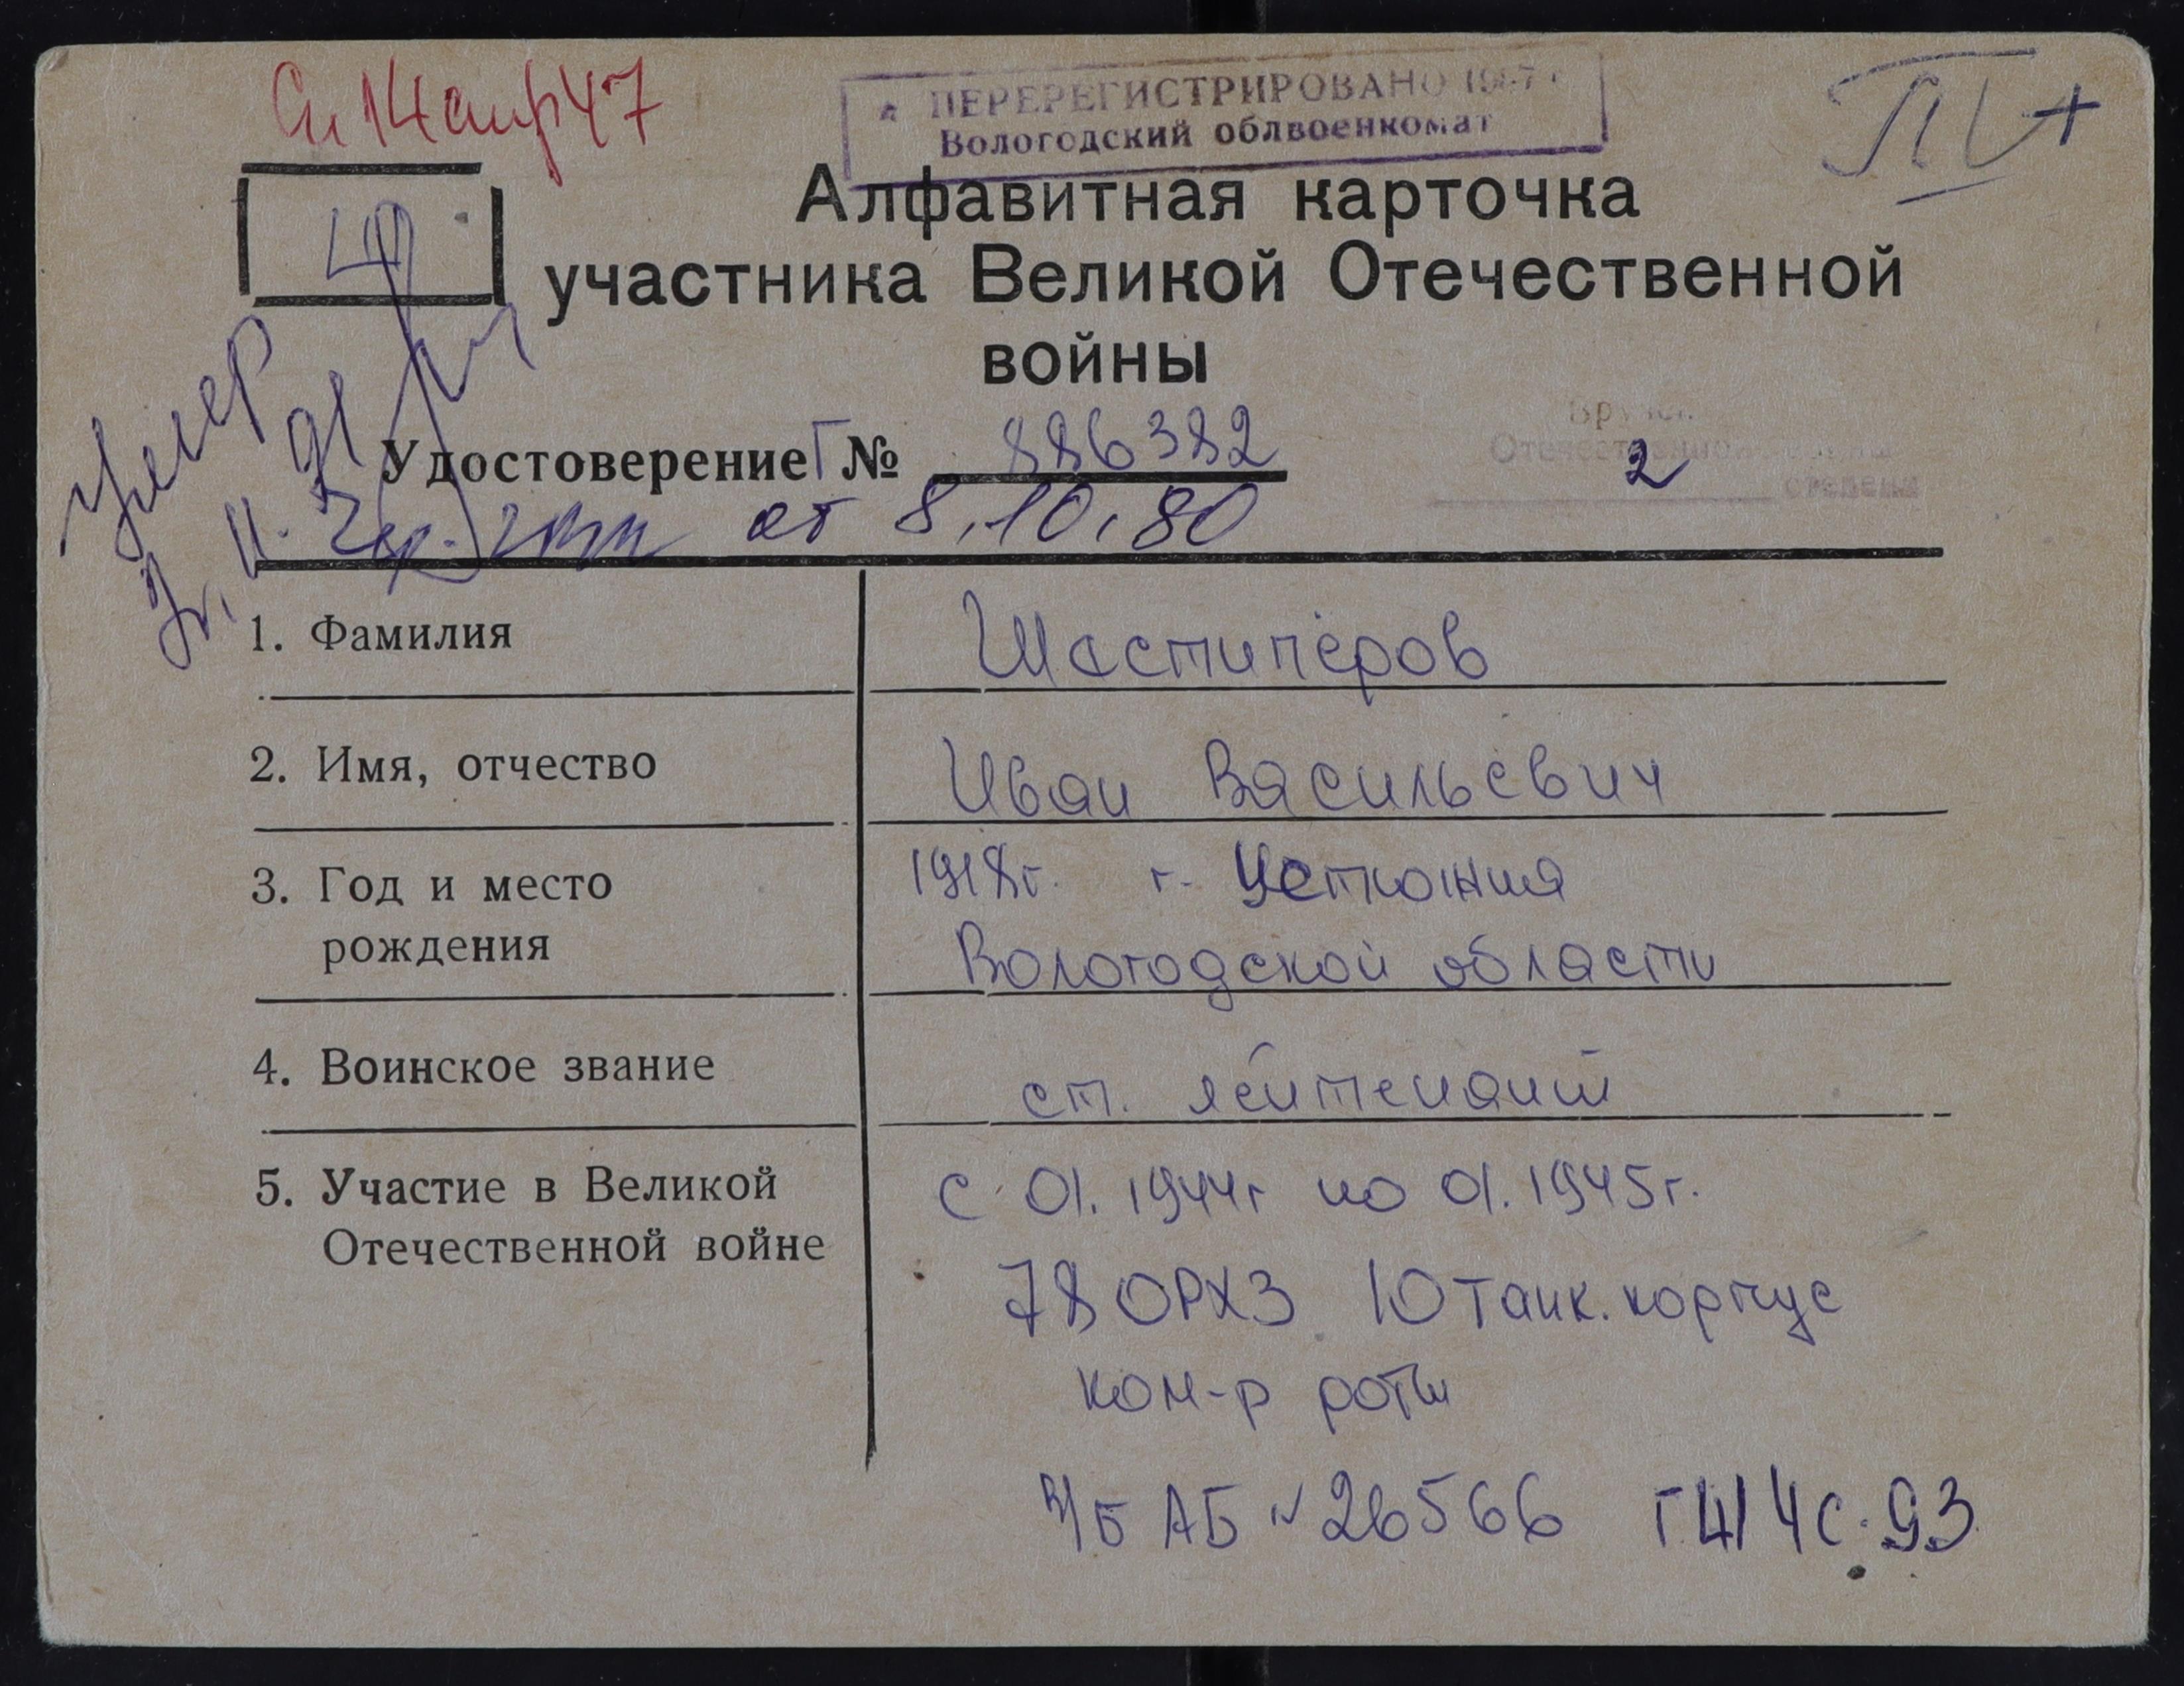 ПЕРЕРЕГИСТРИРОВАНО
Вологодский облвоенкомат
Алфавитная карточка
участника Великой Отечественной
войны
умер
Удостоверение Г № 886382
от 8.10.80
Отечественной войны
2 степени
1. Фамилия
Шастипёров
2. Имя, отчество
Иван Васильевич
3. Год и место рождения
1918г. г. Устюжня
Вологодской области
4. Воинское звание
ст. лейтенант
5. Участие в Великой Отечественной войне
с 01.1944г по 01.1945г.
78 ОРХЗ 10 танк. корпус
ком-р роты
в/б АБ № 26566